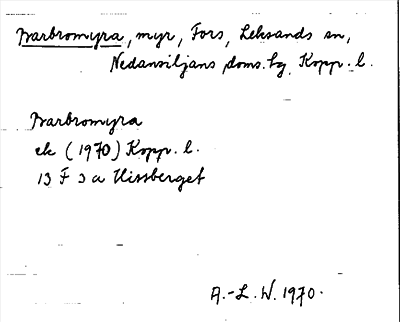 Barbromyra, myr, Fors, Leksands sn,
Nedansiljans doms.hg, Kopp. l.
Barbromyra
ek (1970) Kopp. l.
13 F 3 a Hissberget
A.-L. W. 1970.